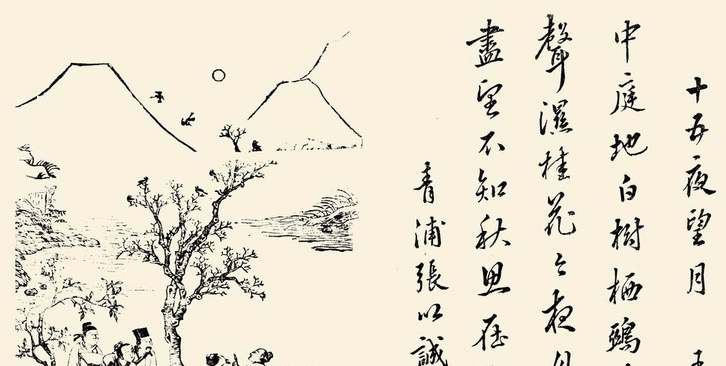 十五夜望月
中庭地白樹栖鵶
聲濕桂花今夜月
盡望不知秋思在
青浦張以誠